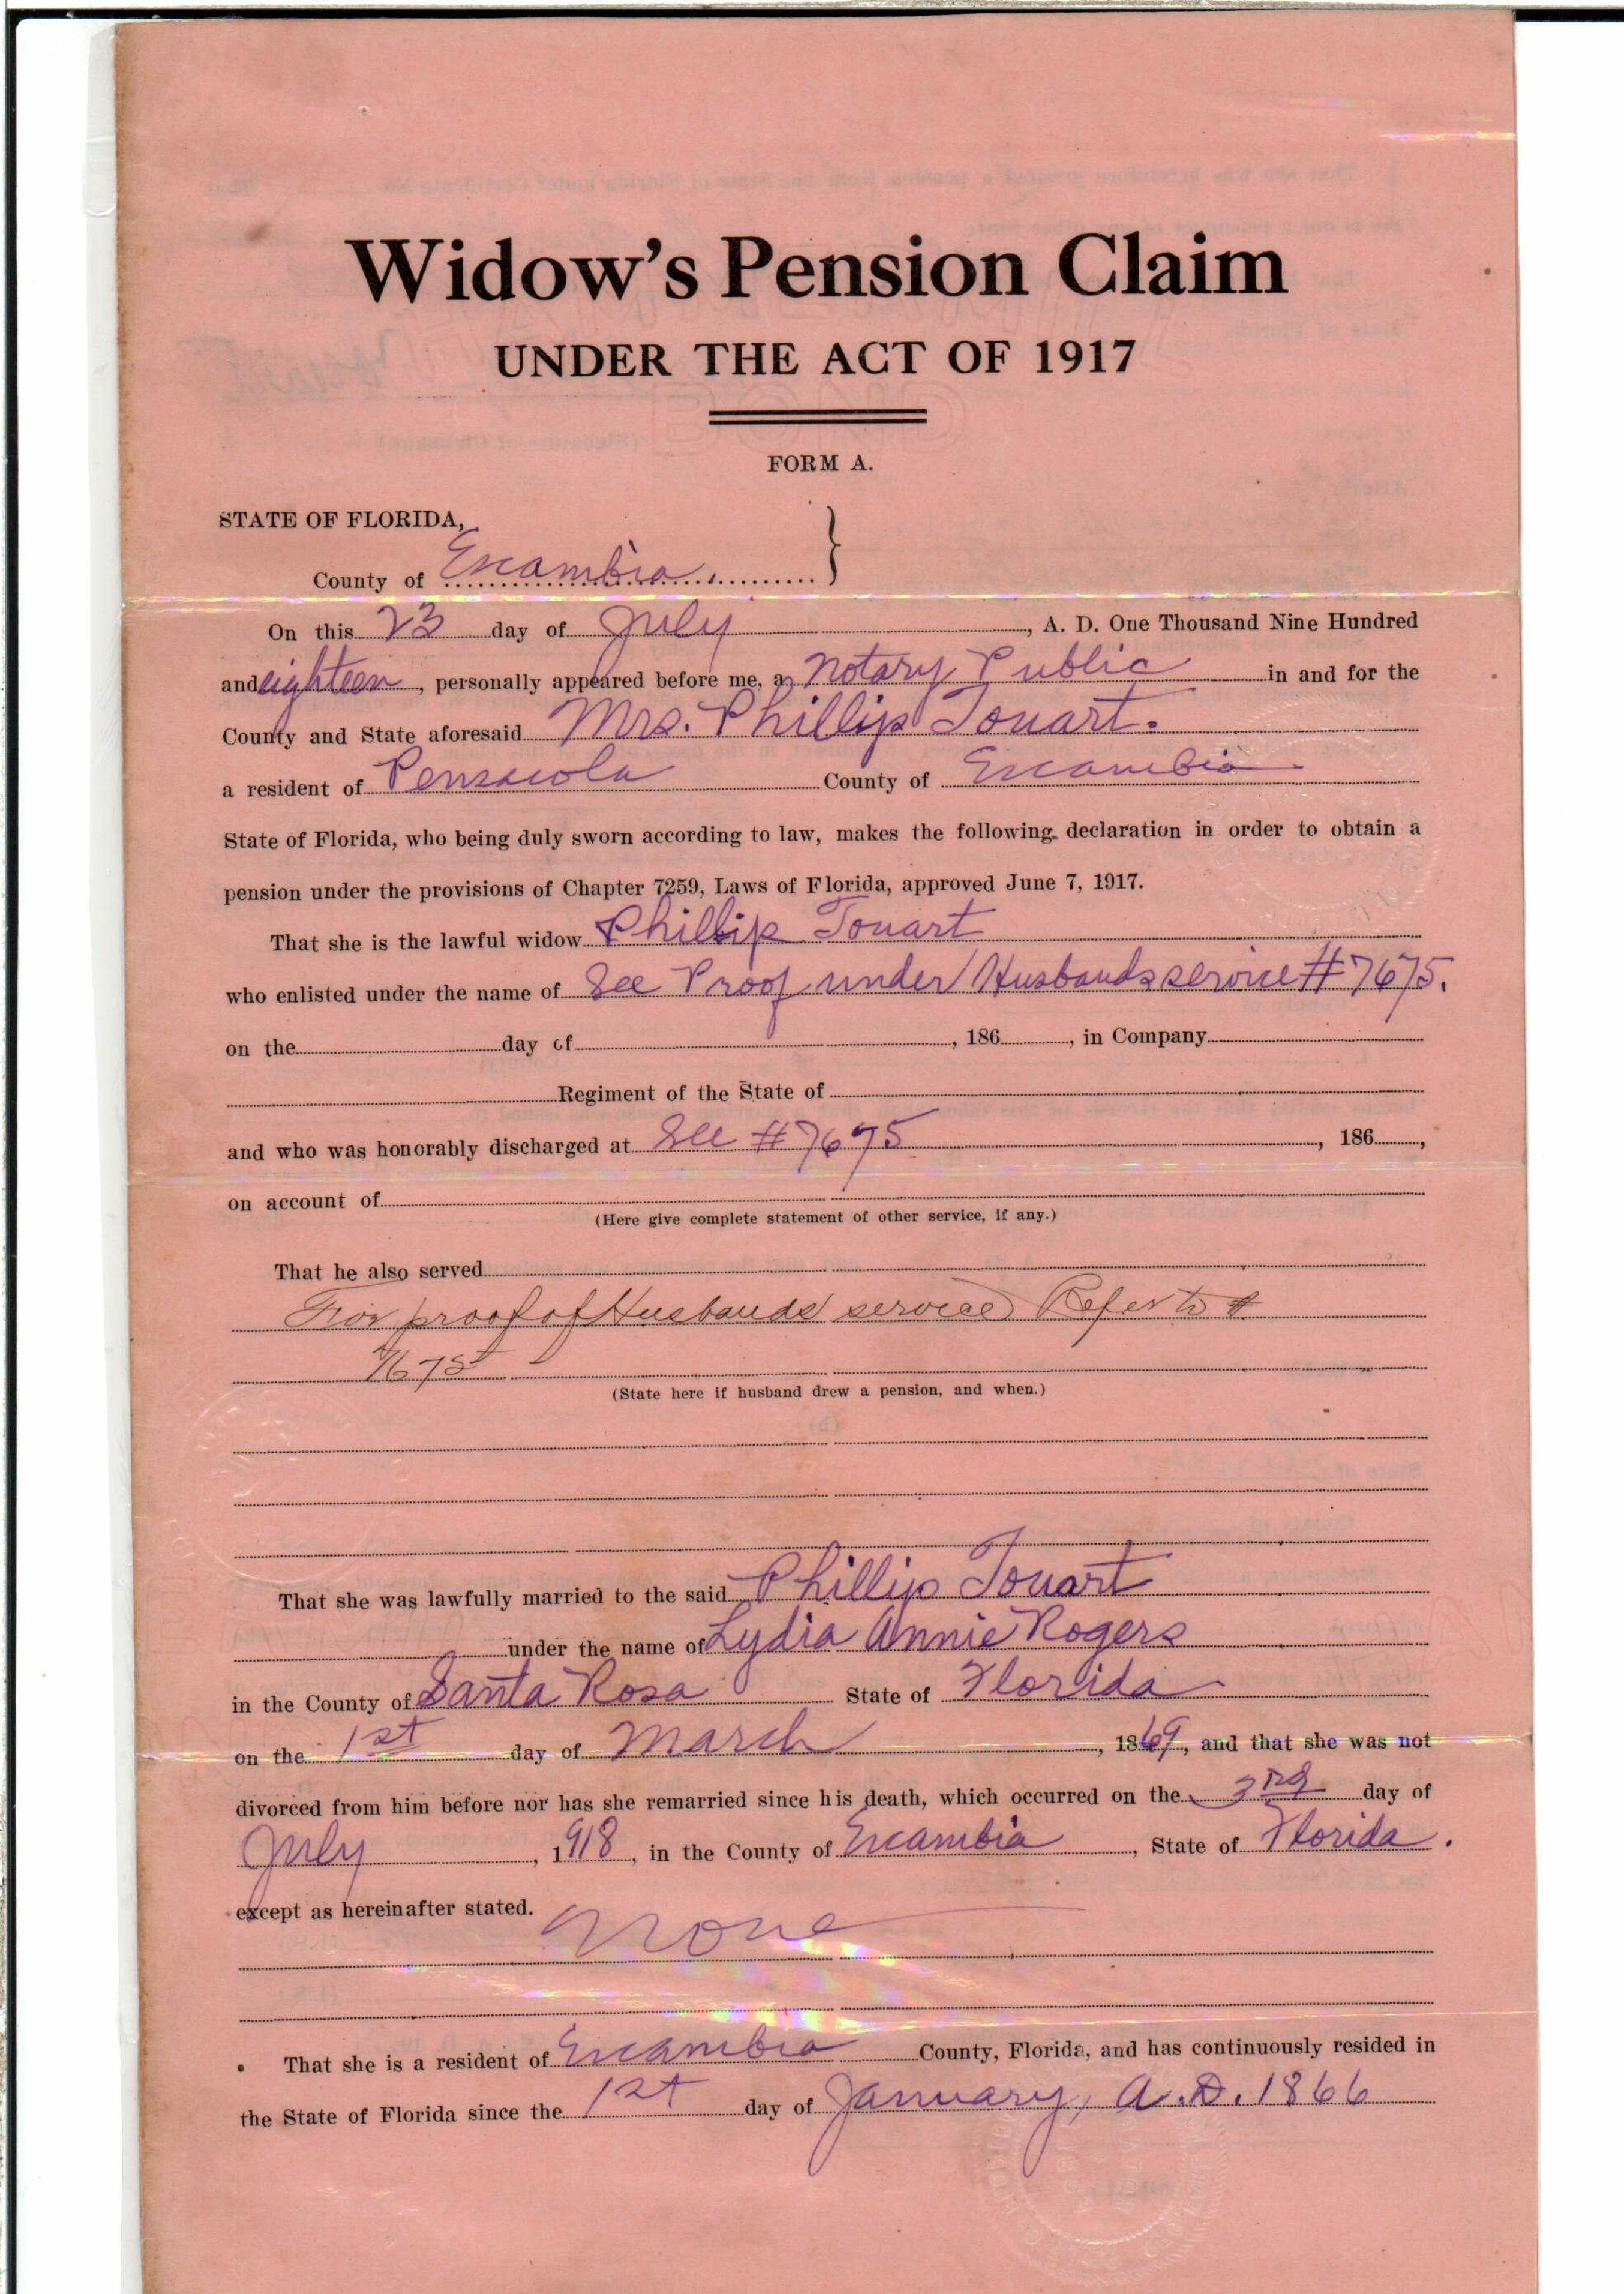 Widow's Pension Claim
UNDER THE ACT OF 1917
FORM A.
STATE OF FLORIDA,
County of Escambia
On this 23 day of July, A. D. One Thousand Nine Hundred
and eighteen, personally appeared before me, a Notary Public in and for the
County and State aforesaid Mrs. Phillip Touart.
a resident of Pensacola County of Escambia
State of Florida, who being duly sworn according to law, makes the following declaration in order to obtain a
pension under the provisions of Chapter 7259, Laws of Florida, approved June 7, 1917.
That she is the lawful widow Phillip Touart
who enlisted under the name of See Proof under Husbands service #7675.
on the day of , 186 , in Company
Regiment of the State of
and who was honorably discharged at See #7675 , 186 ,
on account of
(Here give complete statement of other service, if any.)
That he also served
For proof of Husbands service Refer to #
7675
(State here if husband drew a pension, and when.)
That she was lawfully married to the said Phillip Touart
under the name of Lydia Annie Rogers
in the County of Santa Rosa State of Florida
on the 1st day of March, 1869, and that she was not
divorced from him before nor has she remarried since his death, which occurred on the 3rd day of
July, 1918, in the County of Escambia, State of Florida.
except as hereinafter stated.
None
That she is a resident of Escambia County, Florida, and has continuously resided in
the State of Florida since the 1st day of January, A.D. 1866